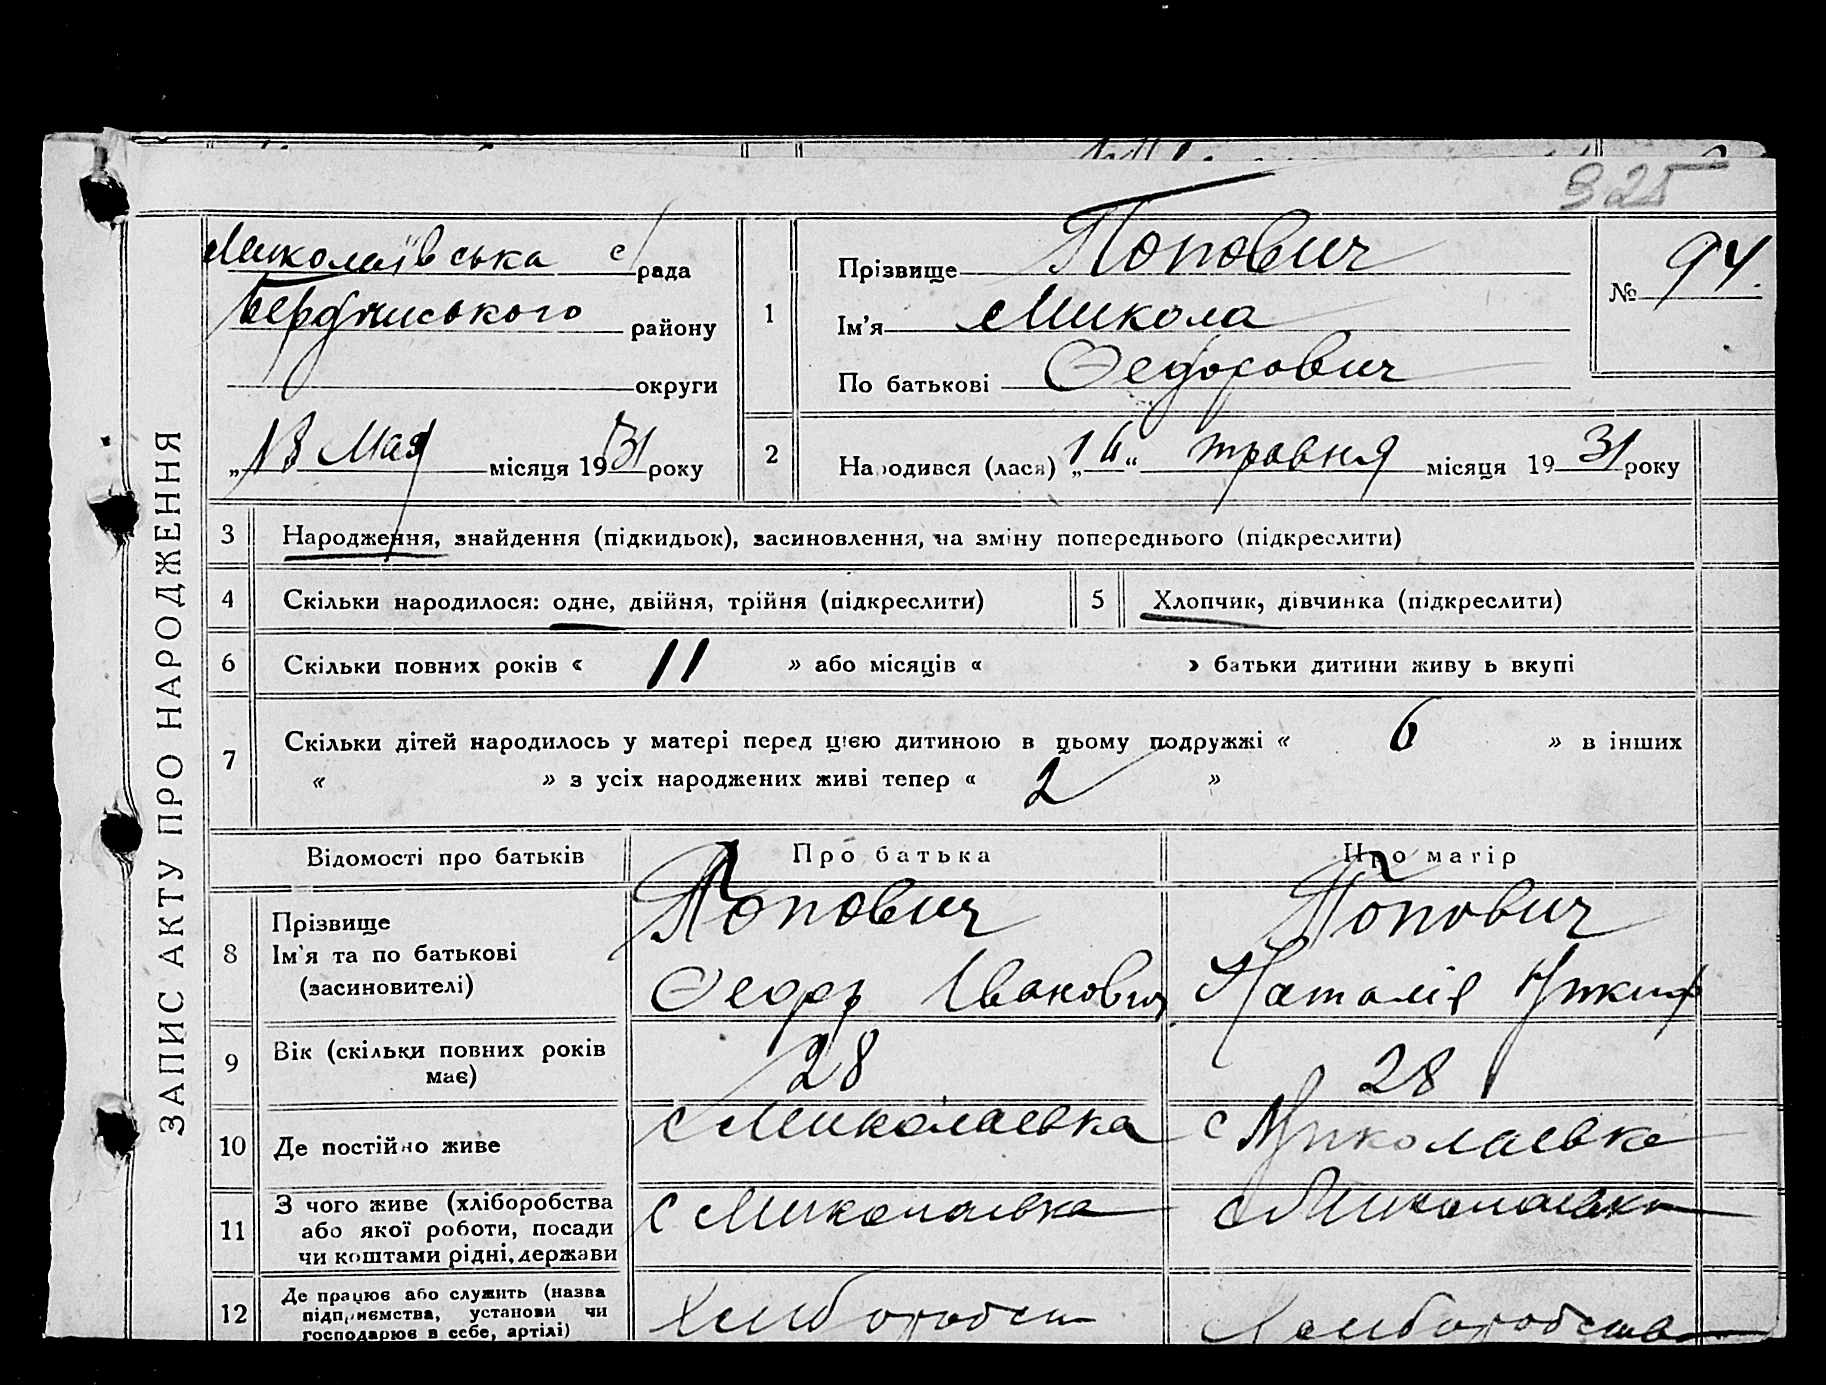 325
ЗАПИС АКТУ ПРО НАРОДЖЕННЯ
Миколаївська с/рада
Бердянського району
округи
„18 Мая місяця 1931 року
1
Прізвище Попович
Ім'я Микола
По батькові Федорович
№ 94.
2
Народився (лася) „16“ травня місяця 1931 року
3 Народження, знайдення (підкидьок), засиновлення, на зміну попереднього (підкреслити)
4 Скільки народилося: одне, двійня, трійня (підкреслити) 5 Хлопчик, дівчинка (підкреслити)
6 Скільки повних років « 11 » або місяців « » батьки дитини живу ь вкупі
7 Скільки дітей народилось у матері перед цією дитиною в цьому подружжі « 6 » в інших
« » з усіх народжених живі тепер « 2 »
Відомості про батьків Про батька Про матір
8 Прізвище Попович Попович
Ім'я та по батькові Федор Іванович Наталія
(засиновителі)
9 Вік (скільки повних років має) 28 28
10 Де постійно живе с Миколаевка с Миколаевка
11 З чого живе (хліборобства с Миколаевка с Миколаевка
або якої роботи, посади
чи коштами рідні, держави
12 Де працює або служить (назва
підприємства, установи чи
господарює в себе, артілі) Хлиборобств Хлиборобства